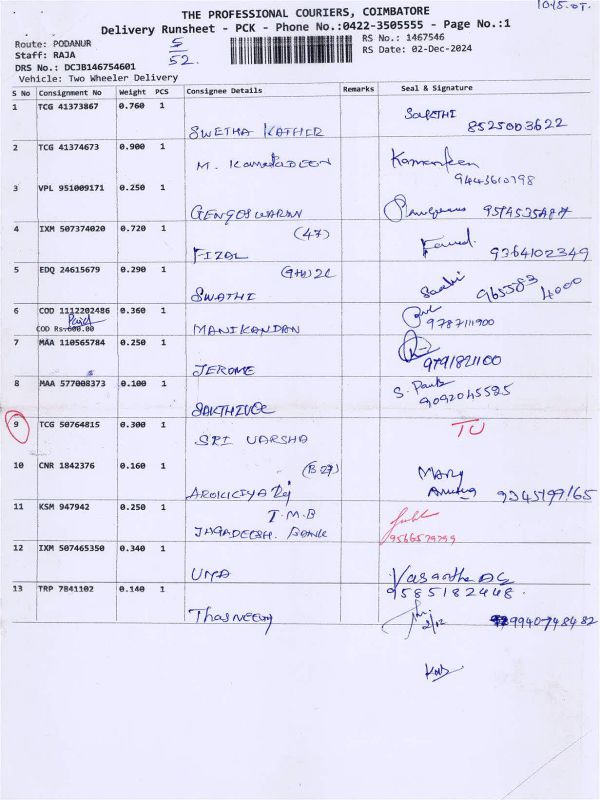 1045.07.
THE PROFESSIONAL COURIERS, COIMBATORE
Delivery Runsheet - PCK - Phone No.:0422-3505555 - Page No.:1
Route: PODANUR 5 RS No.: 1467546
Staff: RAJA 52. RS Date: 02-Dec-2024
DRS No.: DCJB146754601
Vehicle: Two Wheeler Delivery
S No Consignment No Weight PCS Consignee Details Remarks Seal & Signature
1 TCG 41373867 0.760 1 SAKTHI
SWETHA KATHER 8525003622
2 TCG 41374673 0.900 1
M. 9443610798
3 VPL 951009171 0.250 1
GENGESWARAN
4 IXM 507374020 0.720 1 (47)
FIZAL 9364102349
5 EDQ 24615679 0.290 1
SWATHI 965583 4000
6 COD 1112202486 0.360 1
Paid
COD Rs.600.00 MANIKANDAN 9787111900
7 MAA 110565784 0.250 1
JEROME 9791821100
8 MAA 577008373 0.100 1
SAKTHIVEL 9092045525
9 TCG 50764815 0.300 1
SRI VARSHA
10 CNR 1842376 0.160 1 (B 27) Mary
9345197165
11 KSM 947942 0.250 1 T.M.B
JAGADEESH. 9566579799
12 IXM 507465350 0.340 1
UMA Vasantha
13 TRP 7841102 0.140 1 9585182448.
ThasNeem 2/12 9940748482